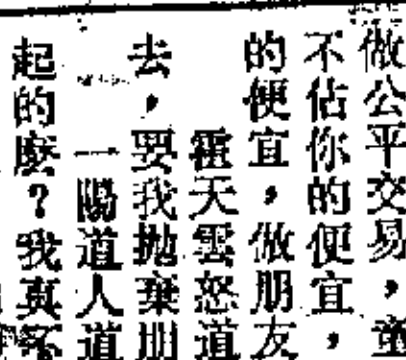 做公平交易，董
不佔你的便宜，
的便宜，做朋友
霍天雲怒道
去，要我拋棄朋
一陽道人道
起的麼？我真不